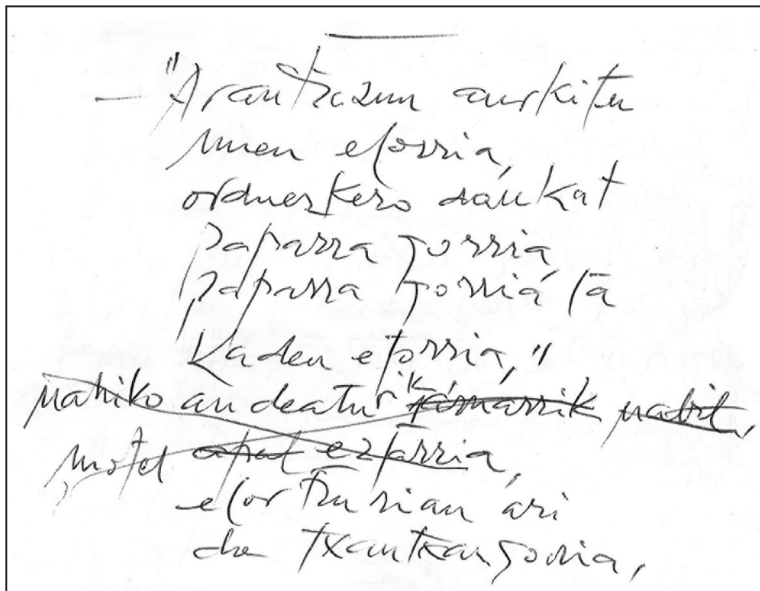 — "Arantzazun aurkitu
nuen elorria,
orduezkero daukat
paparra gorria,
paparra gorria ta
kaden etorria,"
nahiko andeaturik nabil,
motel apal ezarria,
elor txurian ari
da txantxangorria,